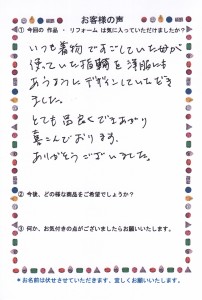 お客様の声
① 今回の 作品 ・ リフォーム は気に入っていただけましたか？
いつも着物ですごしていた母が
使っていた指輪を洋服にも
あうようにデザインしていただき
ました。
とても品良くできあがり
喜こんでおります。
ありがとうございました。
② 今後、どの様な商品をご希望でしょうか？
③ 何か、お気付きの点がございましたらお願いいたします。
＊お名前は伏せさせていただきます、宜しくお願いいたします。